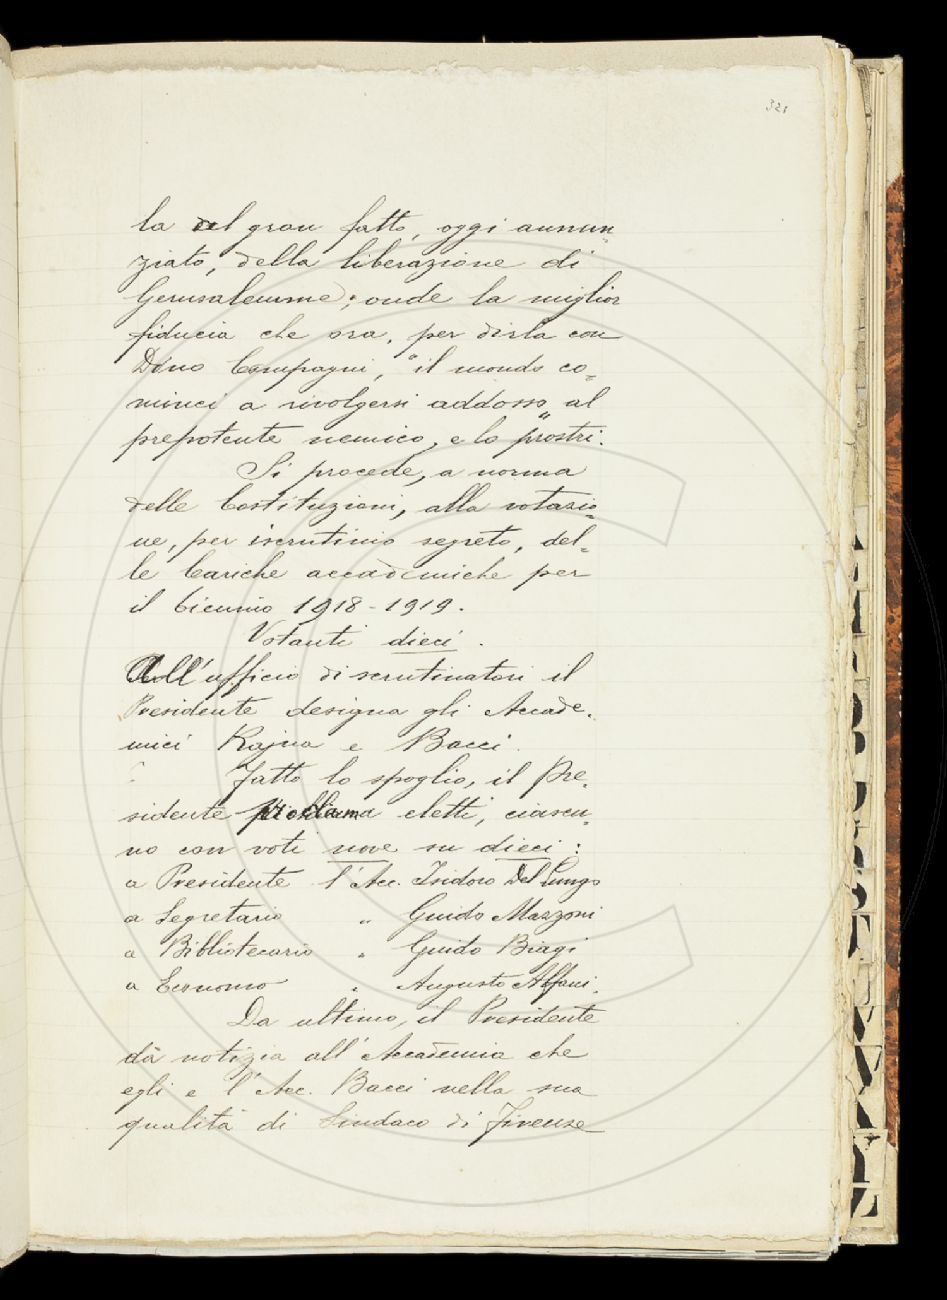 321
la del gran fatto, oggi annun
ziato, della liberazione di
Gerusalemme; onde la miglior
fiducia che ora, per dirla con
Dino Compagni, "il mondo co=
minci a rivolgersi addosso" al
prepotente nemico, e lo prostri.
Si procede, a norma
delle Costituzioni, alla votazio=
ne, per iscrutinio segreto, del=
le Cariche accademiche per
il biennio 1918-1919.
Votanti dieci.
All'ufficio di scrutinatori il
Presidente designa gli Accade-
mici Rajna e Bacci.
Fatto lo spoglio, il Pre-
sidente proclama eletti, ciascu-
no con voti nove su dieci:
a Presidente l'Acc. Isidoro Del Lungo
a Segretario " Guido Mazzoni
a Bibliotecario " Guido Biagi
a Economo " Augusto Alfani.
Da ultimo, il Presidente
dà notizia all'Accademia che
egli e l'Acc. Bacci nella sua
qualità di Sindaco di Firenze